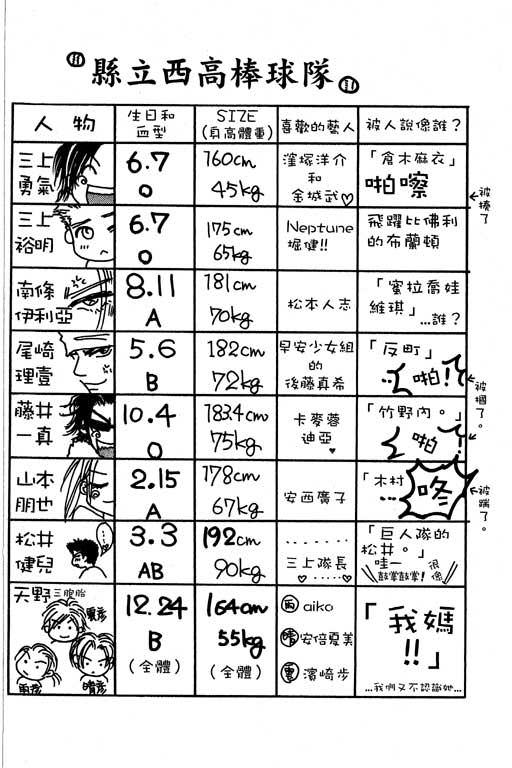 縣立西高棒球隊
人物
生日和
血型
SIZE
(身高體重)
喜歡的藝人
被人說像誰?
三上
勇氣
6.7
O
160cm
45kg
窪塚洋介
和
金城武♡
「倉木麻衣」
啪嚓
←被揍了
三上
裕明
6.7
O
175cm
65kg
Neptune
堀健!!
飛躍比佛利
的布蘭頓
南條
伊利亞
8.11
A
181cm
70kg
松本人志
「蜜拉喬娃
維琪」
...誰?
尾崎
理壹
5.6
B
182cm
72kg
早安少女組
的
後藤真希
「反町」
啪!
←被摑了。
藤井
一真
10.4
O
183.4cm
75kg
卡麥蓉
迪亞
♥
「竹野內。」
啪!
山本
朋也
2.15
A
178cm
67kg
安西廣子
「木村
咚
←被踹了。
松井
健兒
3.3
AB
192cm
90kg
.......
三上隊長
♡......♡
「巨人隊的
松井。」
哇—
很像
鼓掌鼓掌!
天野三胞胎
雨彥
晴彥
12.24
B
(全體)
164cm
55kg
(全體)
雨 aiko
晴 安倍夏美
雪 濱崎步
「我媽
!!」
...我們又不認識她...